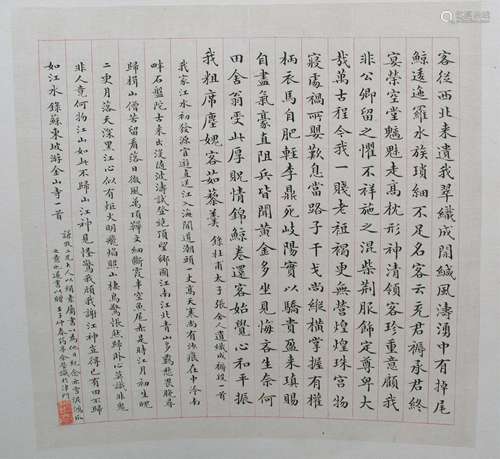 客從西北來遺我翠織成開緘風濤湧中有掉尾
鯨逶迤羅水族瑣細不足名客云充君褥承君終
宴榮空堂魑魅走高枕形神清領客珍重意顧我
非公卿留之懼不祥施之混柴荆服飾定尊卑大
哉萬古程今我一賤老裋褐更無營煌煌珠宮物
寢處禍所嬰歎息當路子干戈尚縱橫掌握有權
柄衣馬自肥輕李鼎死岐陽實以驕貴盈來瑱賜
自盡氣豪直阻兵皆聞黃金多坐見悔吝生奈何
田舍翁受此厚貺情錦鯨卷還客始覺心和平振
我粗席塵愧客茹藜羹 錄杜甫太子張舍人遺織成褥段一首
我家江水初發源宦遊直送江入海聞道潮頭一丈高天寒尚有沙痕在中泠南
畔石盤陀古來出沒隨波濤試登絕頂望鄉國江南江北青山多羈愁畏晚尋
歸楫山僧苦留看落日微風萬頃靴文細斷霞半空魚尾赤是時江月初生魄
二更月落天深黑江心似有炬火明飛焰照山棲鳥驚悵然歸臥心莫識非鬼
非人竟何物江山如此不歸山江神見怪驚我頑我謝江神豈得已有田不歸
如江水 錄蘇東坡游金山寺一首